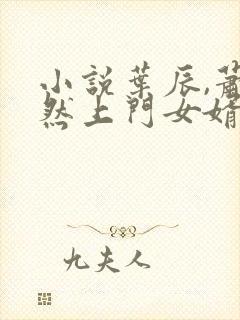 小説葉辰,蕭
然上門女婿
九夫人